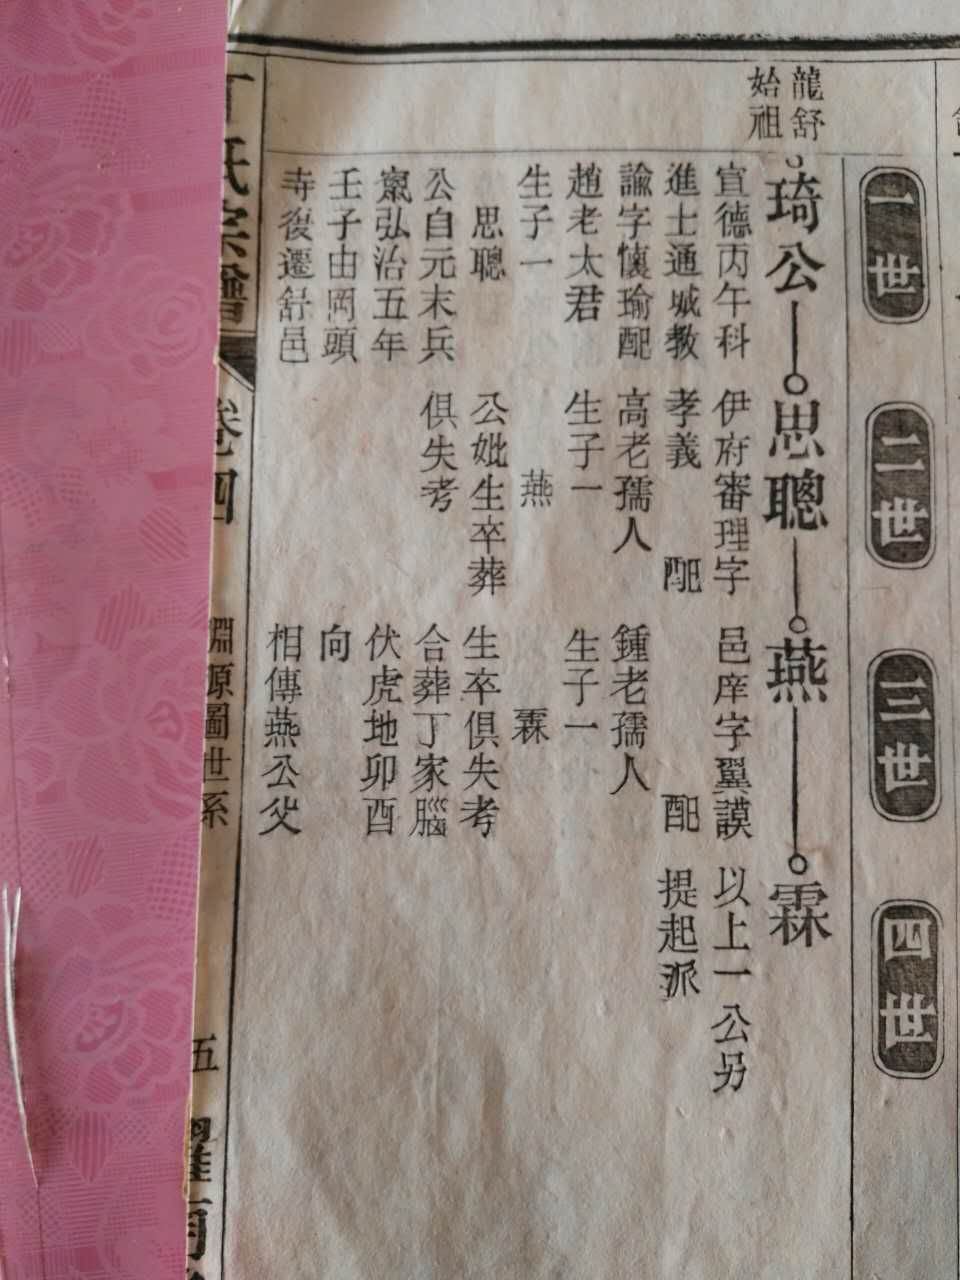 龍舒
始祖
一世
二世
三世
四世
琦公
思聰
燕
霖
宣德丙午科
進士通城教
諭字懷瑜配
趙老太君
生子一
思聰
公自元末兵
竄弘治五年
壬子由岡頭
寺復遷舒邑
伊府審理字
孝義 配
高老孺人
生子一
燕
公妣生卒葬
俱失考
邑庠字翼謨
配
鍾老孺人
生子一
霖
生卒俱失考
合葬丁家腦
伏虎地卯酉
向
相傳燕公父
以上一公另
提起派
丁氏宗譜
卷四
淵源圖世系
五